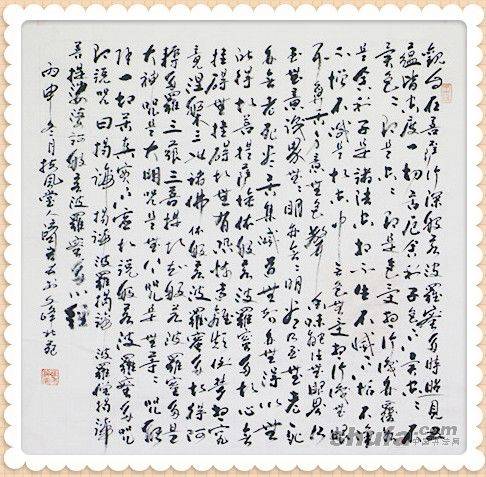 觀自在菩薩行深般若波羅蜜多時照見五
蘊皆空度一切苦厄舍利子色不異空空不
異色色即是空空即是色受想行識亦復如
是舍利子是諸法空相不生不滅不垢不淨
不增不減是故空中無色無受想行識無眼
耳鼻舌身意無色聲香味觸法無眼界乃
至無意識界無無明亦無無明盡乃至無老死
亦無老死盡無苦集滅道無智亦無得以無
所得故菩提薩埵依般若波羅蜜多故心無
挂礙無挂礙故無有恐怖遠離顛倒夢想究
竟涅槃三世諸佛依般若波羅蜜多故得阿
耨多羅三藐三菩提故知般若波羅蜜多是
大神咒是大明咒是無上咒是無等等咒能
除一切苦真實不虛故說般若波羅蜜多咒
即說咒曰揭諦揭諦波羅揭諦波羅僧揭諦
菩提娑婆訶般若波羅蜜多心經
丙申冬月扶風堂人
shufa.com
中国书法网